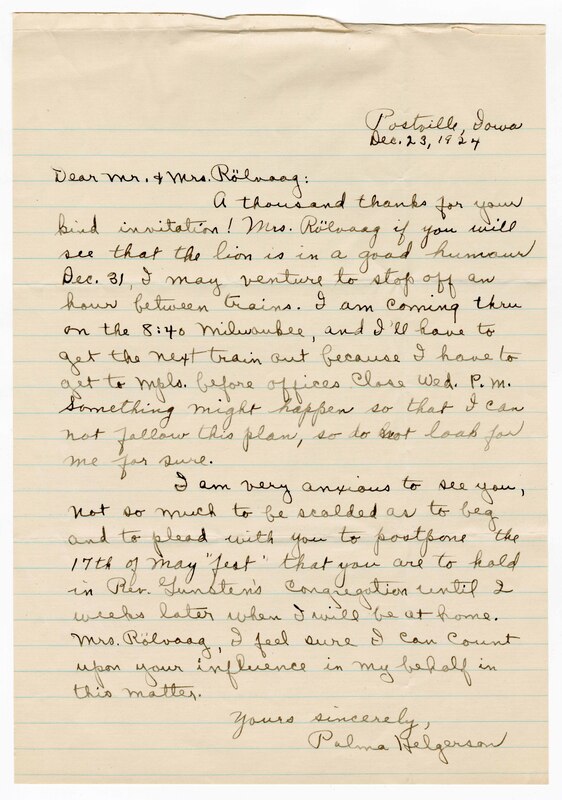 Postville, Iowa
Dec. 23, 1924
Dear Mr. & Mrs. Rölvaag:
A thousand thanks for your
kind invitation! Mrs. Rölvaag if you will
see that the lion is in a good humour
Dec. 31, I may venture to stop off an
hour between trains. I am coming thru
on the 8:40 Milwaukee, and I'll have to
get the next train out because I have to
get to Mpls. before offices close Wed. P. M.
Something might happen so that I can
not follow this plan, so do not look for
me for sure.
I am very anxious to see you,
not so much to be scolded as to beg
and to plead with you to postpone the
17th of May "fest" that you are to hold
in Rev. Gunsten's congregation until 2
weeks later when I will be at home.
Mrs. Rölvaag, I feel sure I can count
upon your influence in my behalf in
this matter.
Yours sincerely,
Palma Helgerson